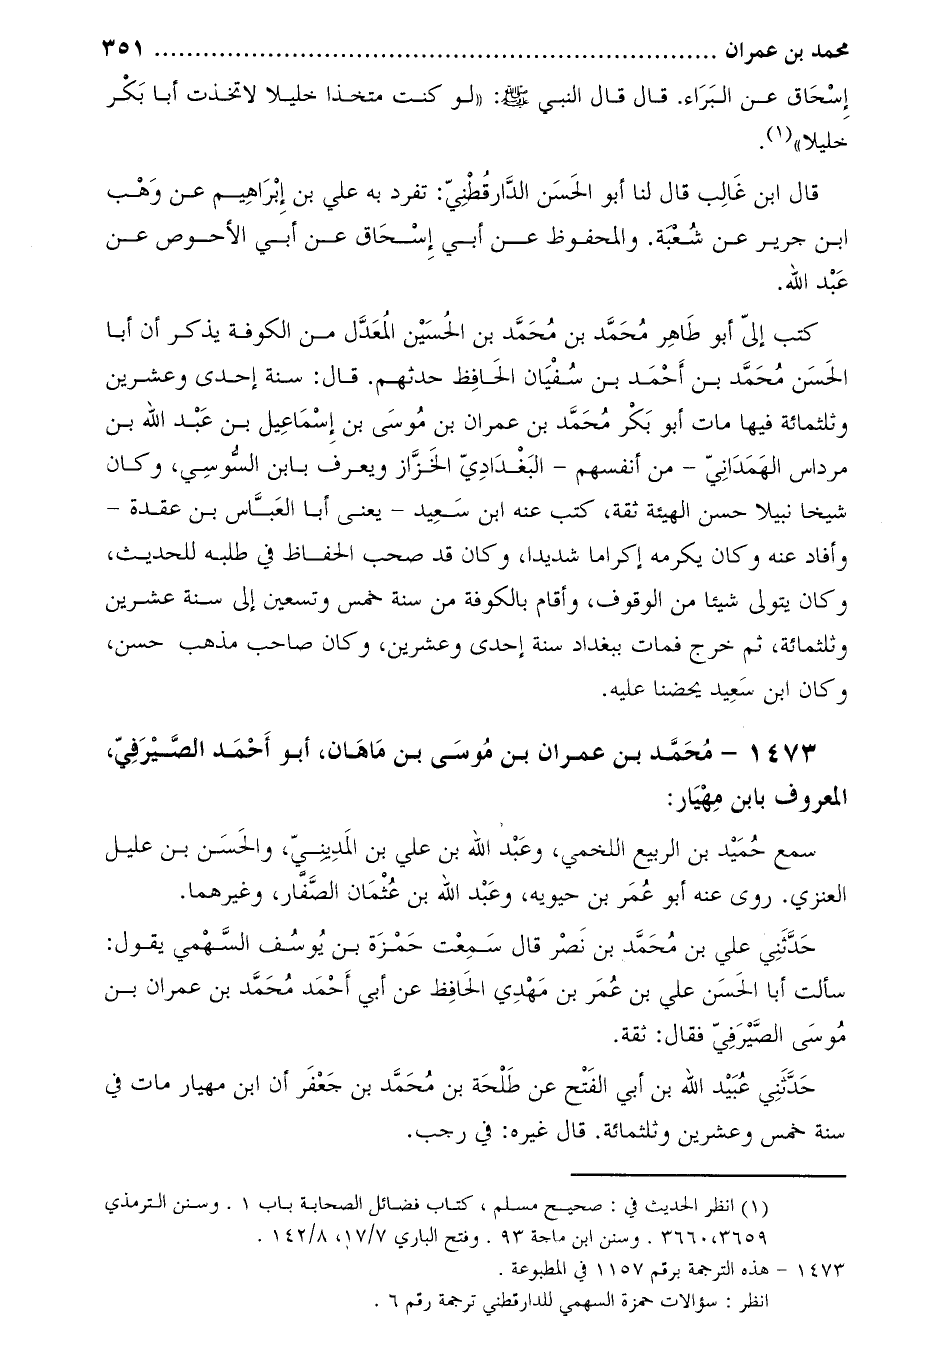 محمد بن عمران ........................................................................ ٣٥١
إسْحَاق عـن البَرَاء. قـال قال النبي ﷺ: «لـو كنـت متخـذا خليـلا لاتخـذت أبـا بَكْر
خليلا»(١).
قال ابن غَالِب قال لنا أبو الحَسَن الدَّارقُطْنِيّ: تفرد به علي بن إبْرَاهِيـم عـن وَهْـب
ابـن جريـر عـن شُعْبَة. والمحفـوظ عـــن أبـي إسْـحَاق عـن أبـي الأحـوص عـن
عَبْد الله.
كتب إليّ أبو طَاهِر مُحَمَّد بن مُحَمَّد بن الحُسَيْن المُعَدَّل مـن الكوفـة يذكـر أن أبـا
الحَسَن مُحَمَّد بـن أَحْمَـد بـن سُـفْيَان الحَـافِظ حدثهـم. قـال: سـنة إحـدى وعشـرين
وثلثمائة فيها مات أبو بَكْر مُحَمَّد بن عمران بن مُوسَى بن إسْمَاعِيل بـن عَبْـد الله بـن
مرداس الهَمَدَانِيّ - من أنفسهم - البَغْـدَادِيّ الخَزَّاز ويعرف بـابن السُّوسِي، وكـان
شيخا نبيلا حسن الهيئة ثقة، كتب عنه ابن سَـعِيد - يعنـى أبـا العَبَّـاس بـن عقـدة -
وأفاد عنه وكان يكرمه إكراما شديدا، وكان قد صحب الحفـاظ في طلبـه للحديـث،
وكان يتولى شيئا من الوقوف، وأقام بالكوفة من سنة خمس وتسعين إلى سـنة عشـرين
وثلثمائة، ثم خرج فمات ببغداد سنة إحدى وعشرين، وكان صاحب مذهب حسن،
وكان ابن سَعِيد يحضنا عليه.
١٤٧٣ - مُحَمَّـد بـن عمـران بـن مُوسَـى بـن مَاهَـان، أبـو أَحْمَـد الصَّـيْرَفِيّ،
المعروف بابن مِهْيَار:
سمع حُمَيْد بن الربيع اللخمي، وعَبْد الله بن علي بن المَدِينِـيّ، والحَسَـن بـن عليـل
العنزي. روى عنه أبو عُمَر بن حيويه، وعَبْد الله بن عُثْمَان الصَّفَّار، وغيرهما.
حَدَّثَنِي علي بن مُحَمَّد بن نَصْر قال سَمِعْت حَمْزَة بـن يُوسُـف السَّهْمِي يقـول:
سألت أبا الحَسَن علي بن عُمَر بن مَهْدِي الحَافِظ عن أبي أَحْمَد مُحَمَّد بن عمران بـن
مُوسَى الصَّيْرَفِيّ فقال: ثقة.
حَدَّثَنِي عُبَيْد الله بن أبي الفَتْح عن طَلْحَة بن مُحَمَّد بن جَعْفَر أن ابن مهيار مات في
سنة خمس وعشرين وثلثمائة. قال غيره: في رجب.
(١) انظر الحديث في : صحيح مسلم ، كتاب فضائل الصحابة باب ١ . وسنن الترمذي
٣٦٥٩، ٣٦٦٠ . وسنن ابن ماجة ٩٣ . وفتح الباري ١٧/٧، ١٤٢/٨ .
١٤٧٣ - هذه الترجمة برقم ١١٥٧ في المطبوعة .
انظر : سؤالات حمزة السهمي للدارقطني ترجمة رقم ٦ .